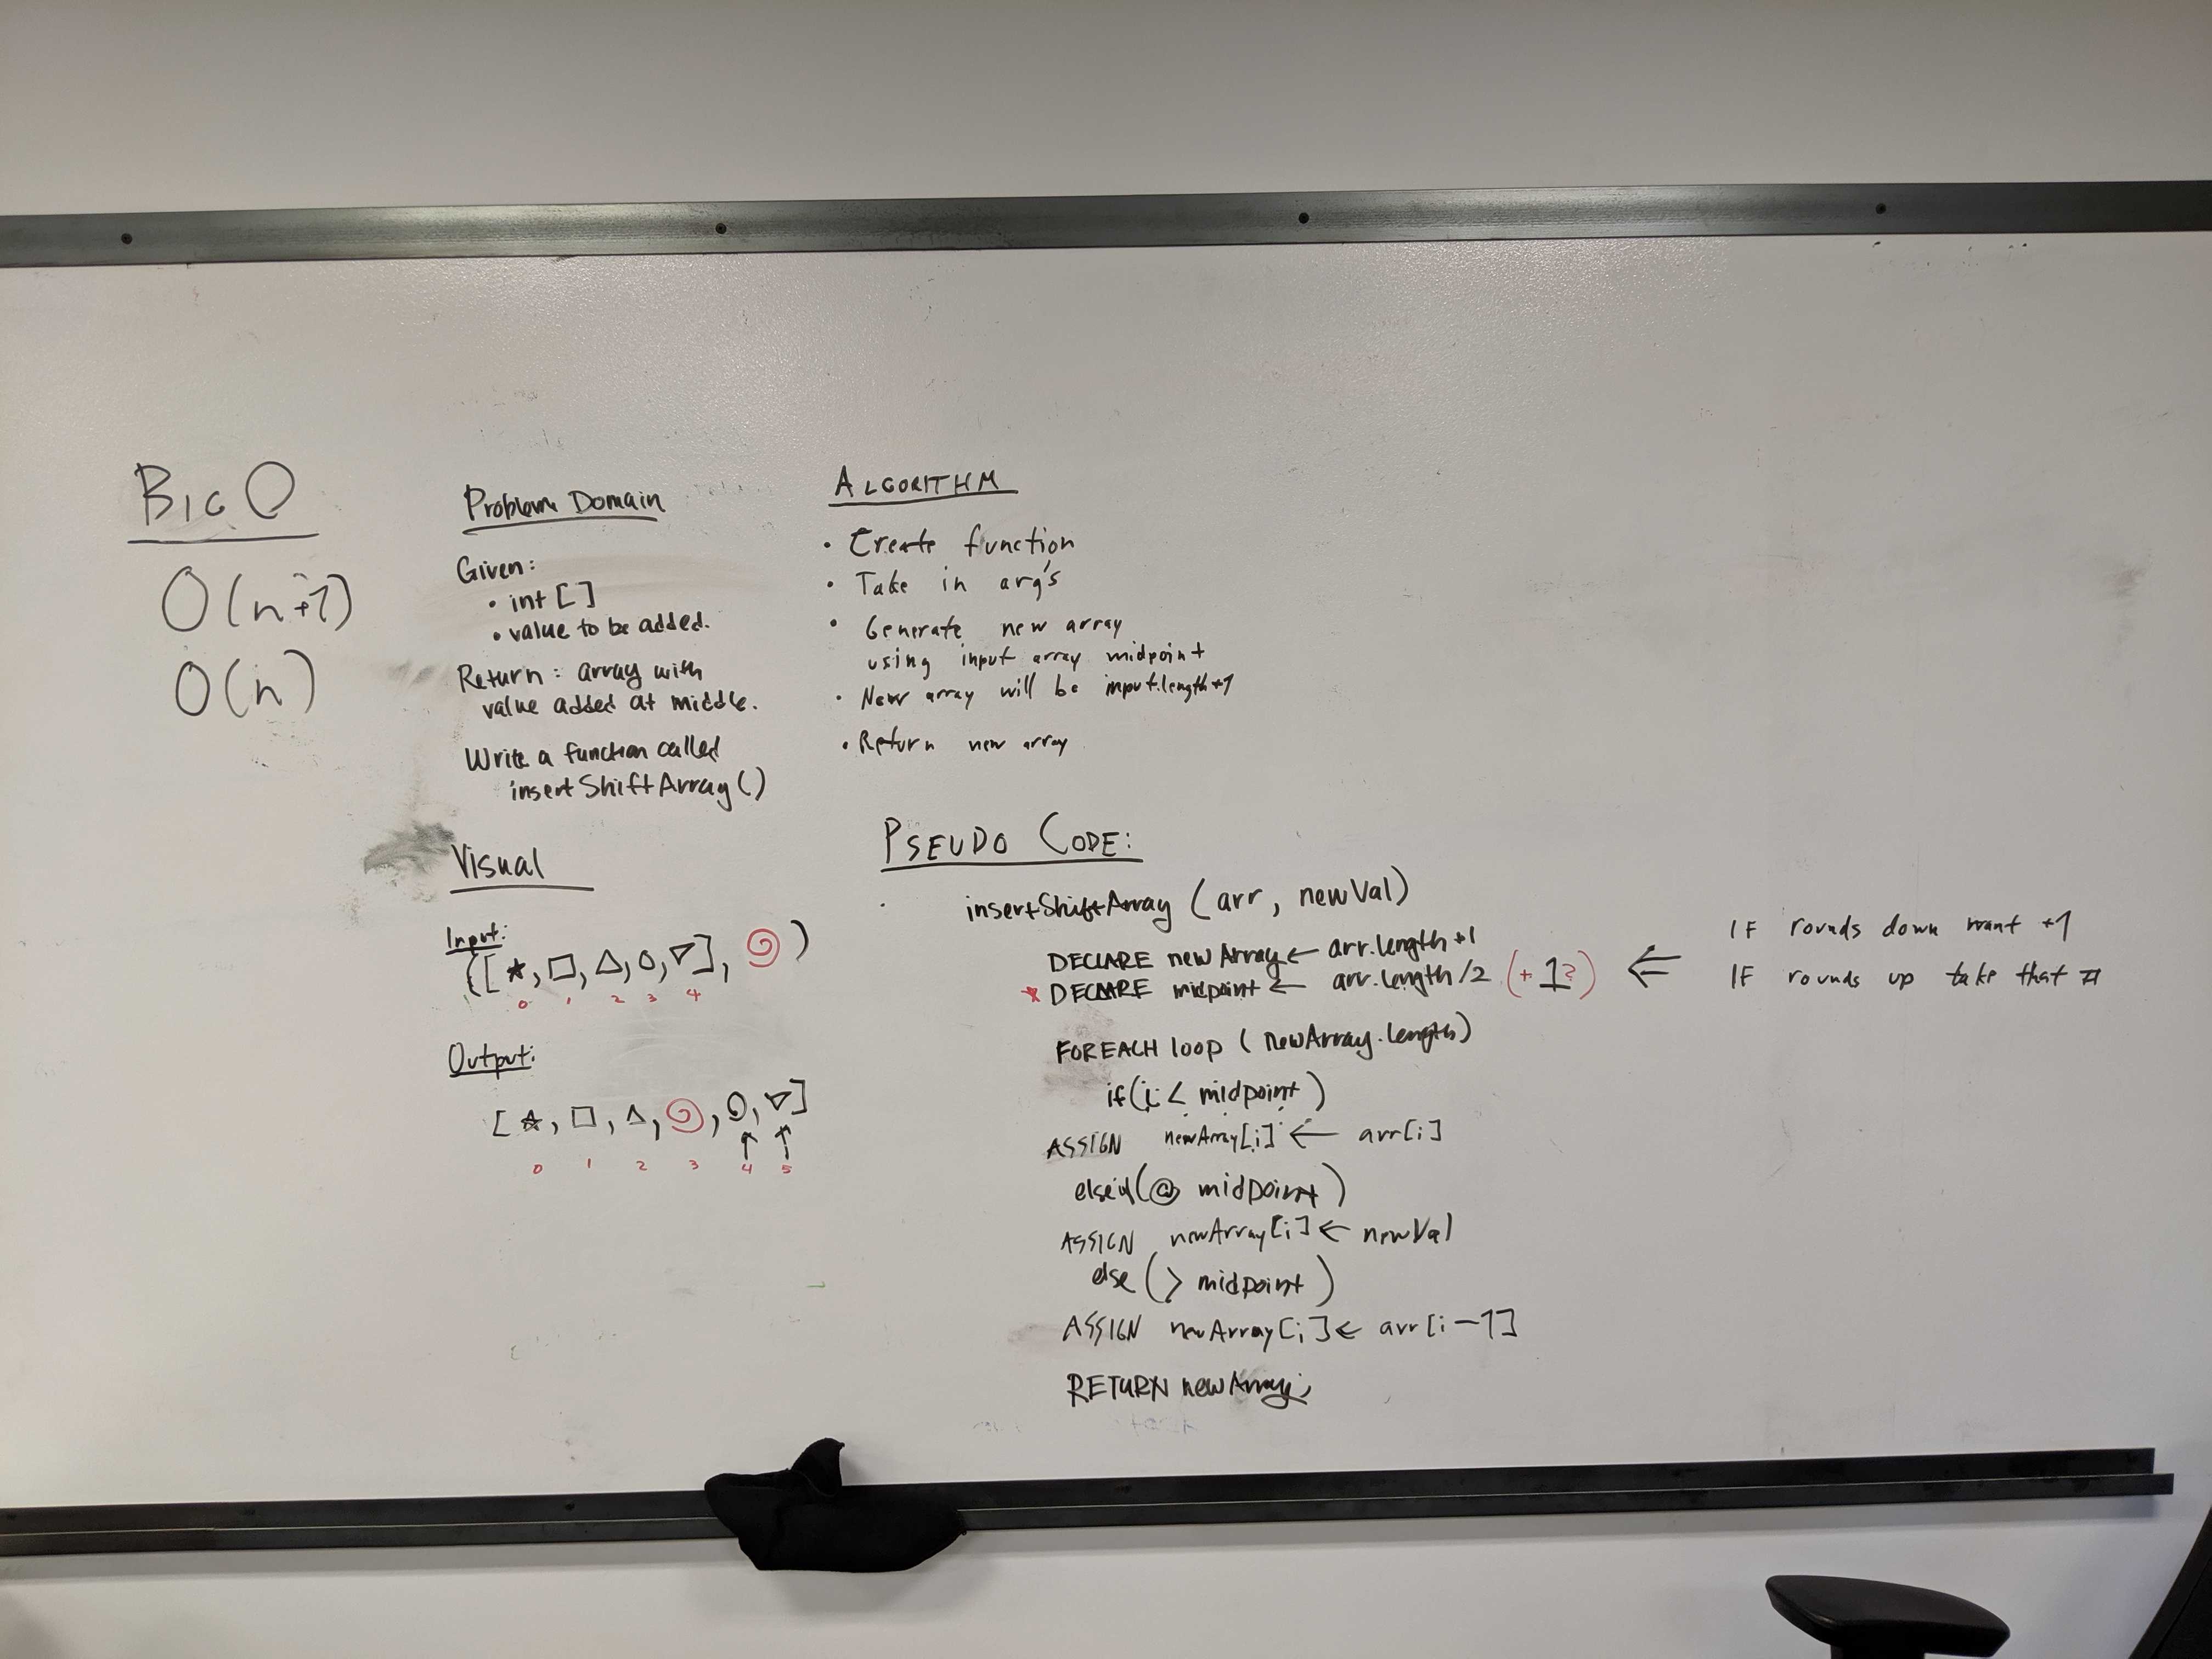 BIG O
O(n+1)
O(n)
Problem Domain
Given:
• int[]
• value to be added.
Return: array with
value added at middle.
Write a function called
insertShiftArray()
Visual
Input:
([☆, □, △, ○, ▽], )
0 1 2 3 4
Output:
[☆, □, △, , ○, ▽]
0 1 2 3 4 5
ALGORITHM
• Create function
• Take in arg's
• Generate new array
using input array midpoint
• New array will be input.length+1
• Return new array
PSEUDO CODE:
insertShiftArray (arr, newVal)
DECLARE newArray ← arr.length+1
* DECLARE midpoint ← arr.length/2 (+1?) ⇐
IF rounds down want +1
IF rounds up take that #
FOREACH loop (newArray.length)
if(i < midpoint)
ASSIGN newArray[i] ← arr[i]
elseif(@ midpoint)
ASSIGN newArray[i] ← newVal
else (> midpoint)
ASSIGN newArray[i] ← arr[i-1]
RETURN newArray;